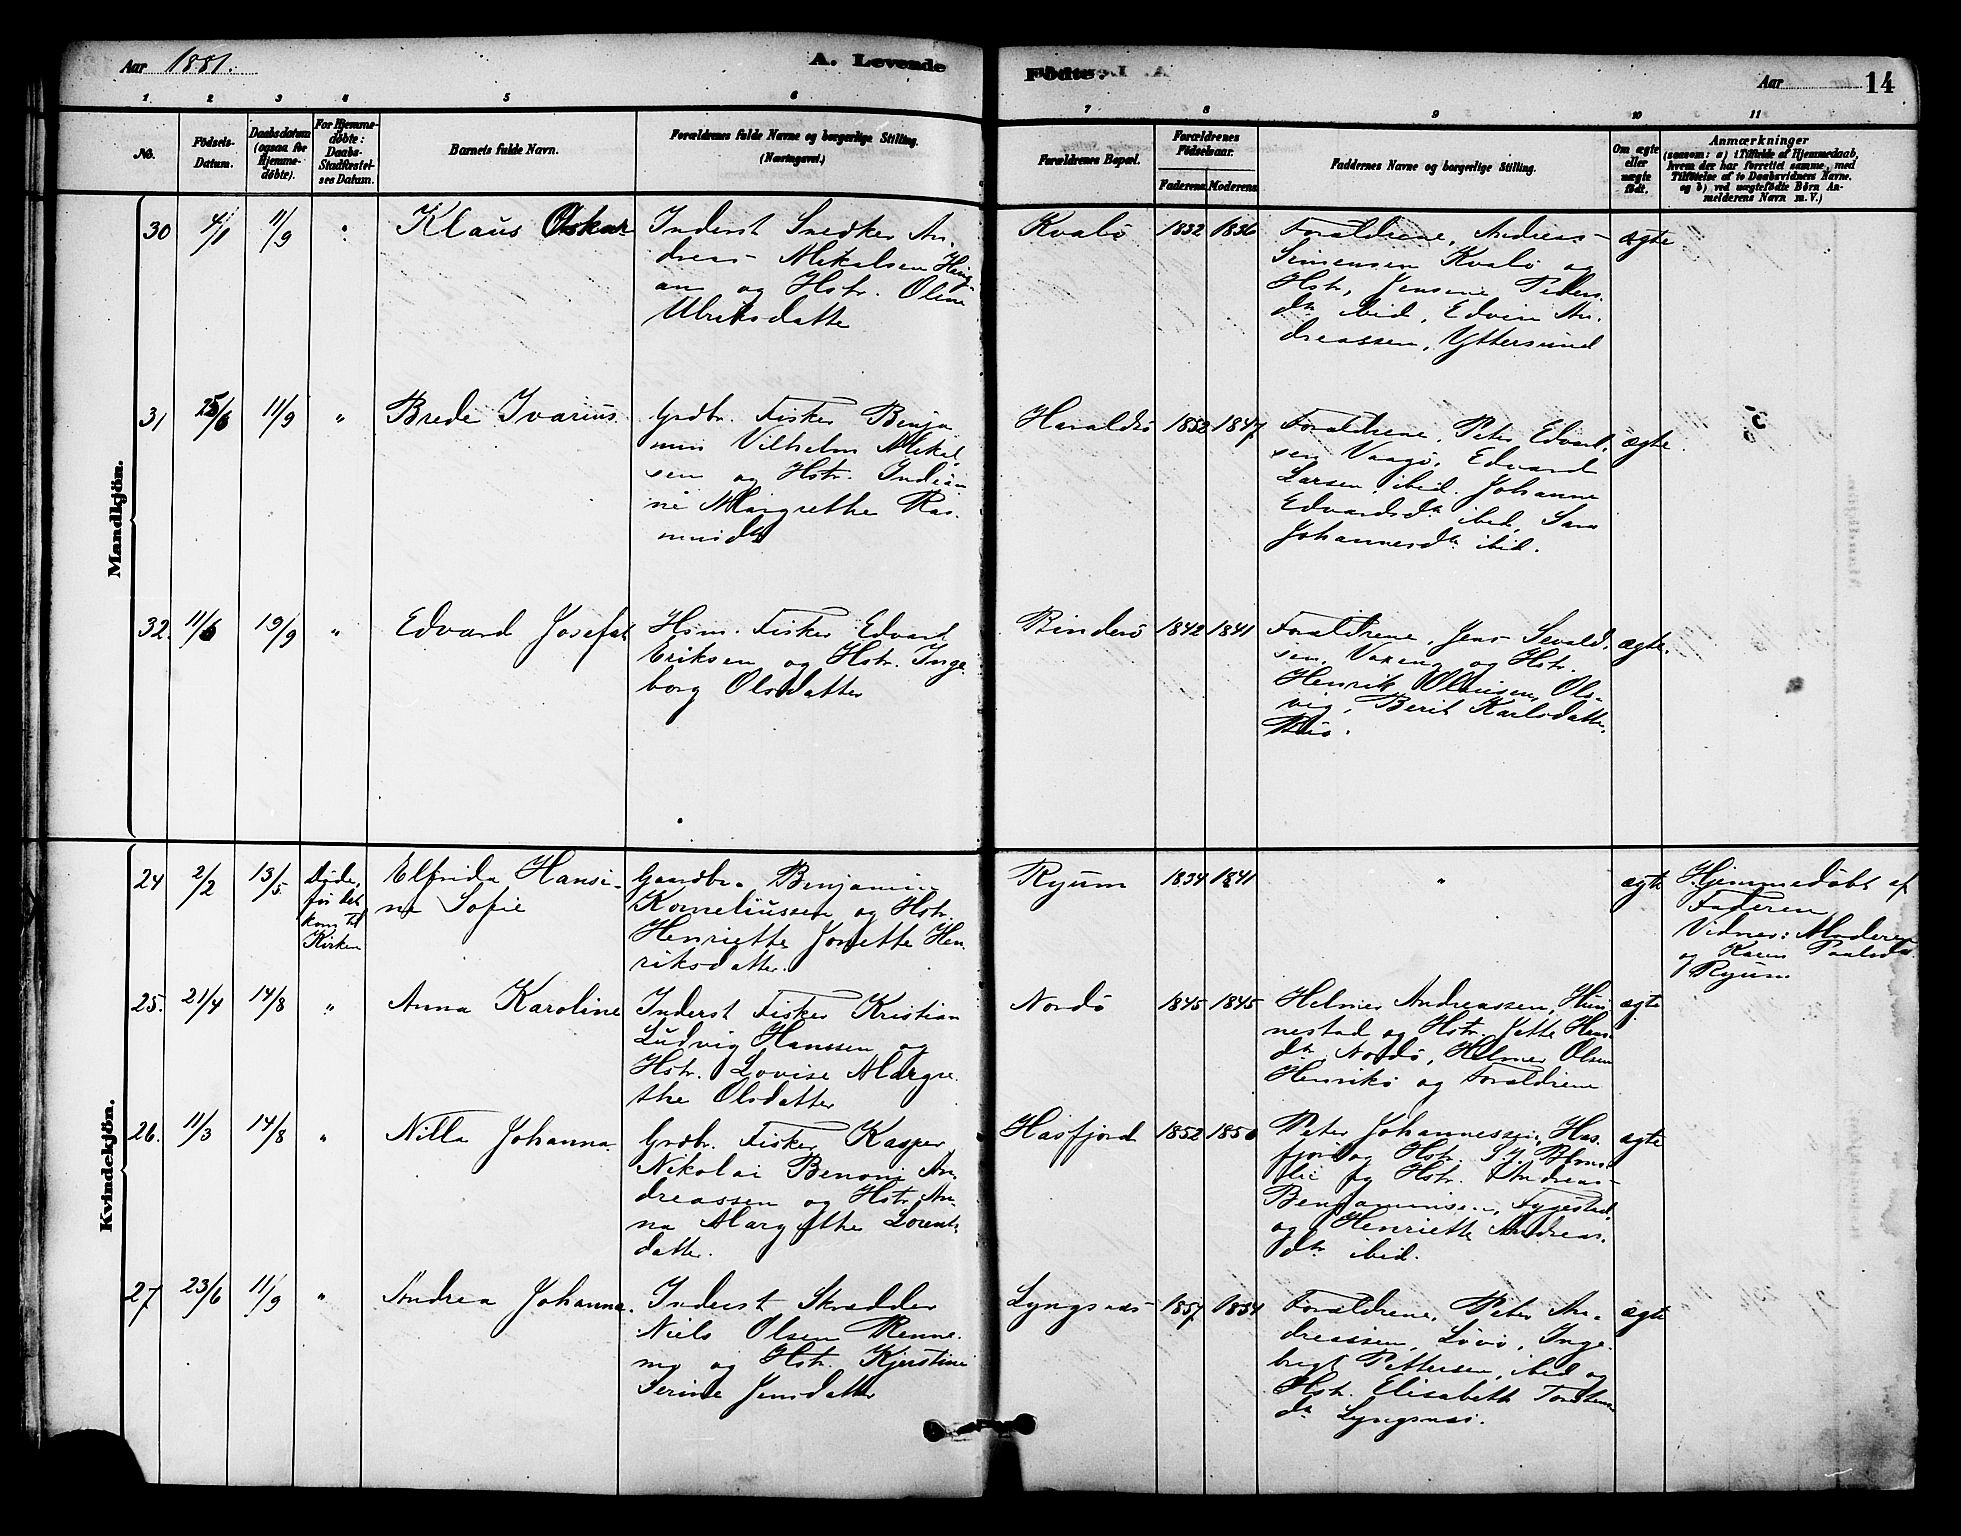 Aar 1881.
A. Levende
Fødte.
Aar
14
1.
2
3
4
5
6
7
8
9
10
11
No.
Fødsels-
Datum.
Daabsdatum
(ogsaa for
Hjemme-
døbte).
For Hjemme-
døbte:
Daabs-
Stadfæstel-
ses Datum.
Barnets fulde Navn.
Forældrenes fulde Navne og borgerlige Stilling.
(Næringsvei.)
Forældrenes Bopæl.
Forældrenes
Fødselsaar.
Faderens
Moderens
Faddernes Navne og borgerlige Stilling.
Om ægte
eller
uægte
født.
Anmærkninger
(saasom: a) i Tilfælde af Hjemmedaab,
hvem der har forrettet samme, med
Tilføielse af to Daabsvidners Navne,
og b) ved uægtefødte Børn An-
melderens Navn m. V.)
Mandkjön.
30
11/9
"
Klaus Oskar
Inderst Snedker An-
dreas Mikalsen
og Hstr. Oline
Ulriksdatter
Kvalø
1832
1836
Forældrene, Andreas
Simensen Kvalø og
Hstr. Jensine Peders
dtr ibid, Edvin An-
dreassen, Yttersund
ægte
31
25/6
11/9
"
Brede Ivarius
Grdbr. Fisker Benja
min Vilhelm Mikal
sen og Hstr. Indian
ne Margrethe Ras
musdtr
Haraldsø
1852
1847
Forældrene, Peter Edvard
sen Vaagø, Edvard
Larsen ibid. Johanne
Edvardsdtr ibid, Sara
Johannesdtr ibid.
ægte
32.
11/6
19/9
"
Edvard Josefat
Hsm. Fisker Edvart
Eriksen og Hstr. Inge
borg Olsdatter
Rindersø
1842
1841
Forældrene, Jens Sevald-
sen, og Hstr.
Henrik Olausen, Ols-
vig, Berit Karlsdatter
ægte.
Kvindekjön.
24
2/2
13/5
Døde,
før det
kom til
Kirken
Elfrida Hansi-
ne Sofie
Gaardbr. Benjamin
Korneliussen og Hstr.
Henriette Jonette Hen
riksdatter.
Ryum
1834
1841
"
ægte
Hjemmedøbt af
Faderen
Vidner: Moderen
og Karen Paalsdtr
Ryum
25.
21/4
14/8
"
Anna Karoline
Inderst Fisker Kristian
Ludvig Hanssen og
Hstr. Lovise Margre
the Olsdatter
Nordø
1845
1845
Helmer Andreassen, Hun
nestad og Hstr. Jette Hans
dtr Nordø, Helmer Olsen
Henrikø og Forældrene
ægte
26.
11/3
14/8
"
Nilla Johanna
Grdbr. Fisker Kasper
Nikolai Benoni An
dreassen og Hstr. An
na Margrethe Lorents
datter.
Hasfjord
1852
1850
Peter Johannessen, Has
fjord og Hstr.
og Hstr. Andreas
Benjaminsen, Fygestad,
og Henriette Andreas
dtr ibid.
ægte
27
23/6
11/9
"
Andrea Johanna
Inderst Skrædder
Niels Olsen Renne
mo og Hstr. Kjerstine
Serine Jensdatter
Lyngsnæs
1857
1854
Forældrene, Peter An-
dreassen, Løvø, Inge
brigt Pettersen, ibid og
Hstr. Elisabeth Torstens
dtr Lyngsnæs.
ægte